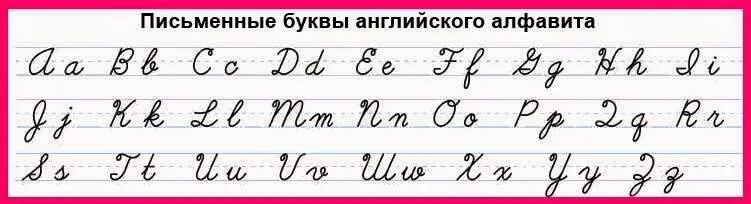 Письменные буквы английского алфавита
A a B b C c D d E e F f G g H h I i
J j K k L l M m N n O o P p Q q R r
S s T t U u V v W w X x Y y Z z